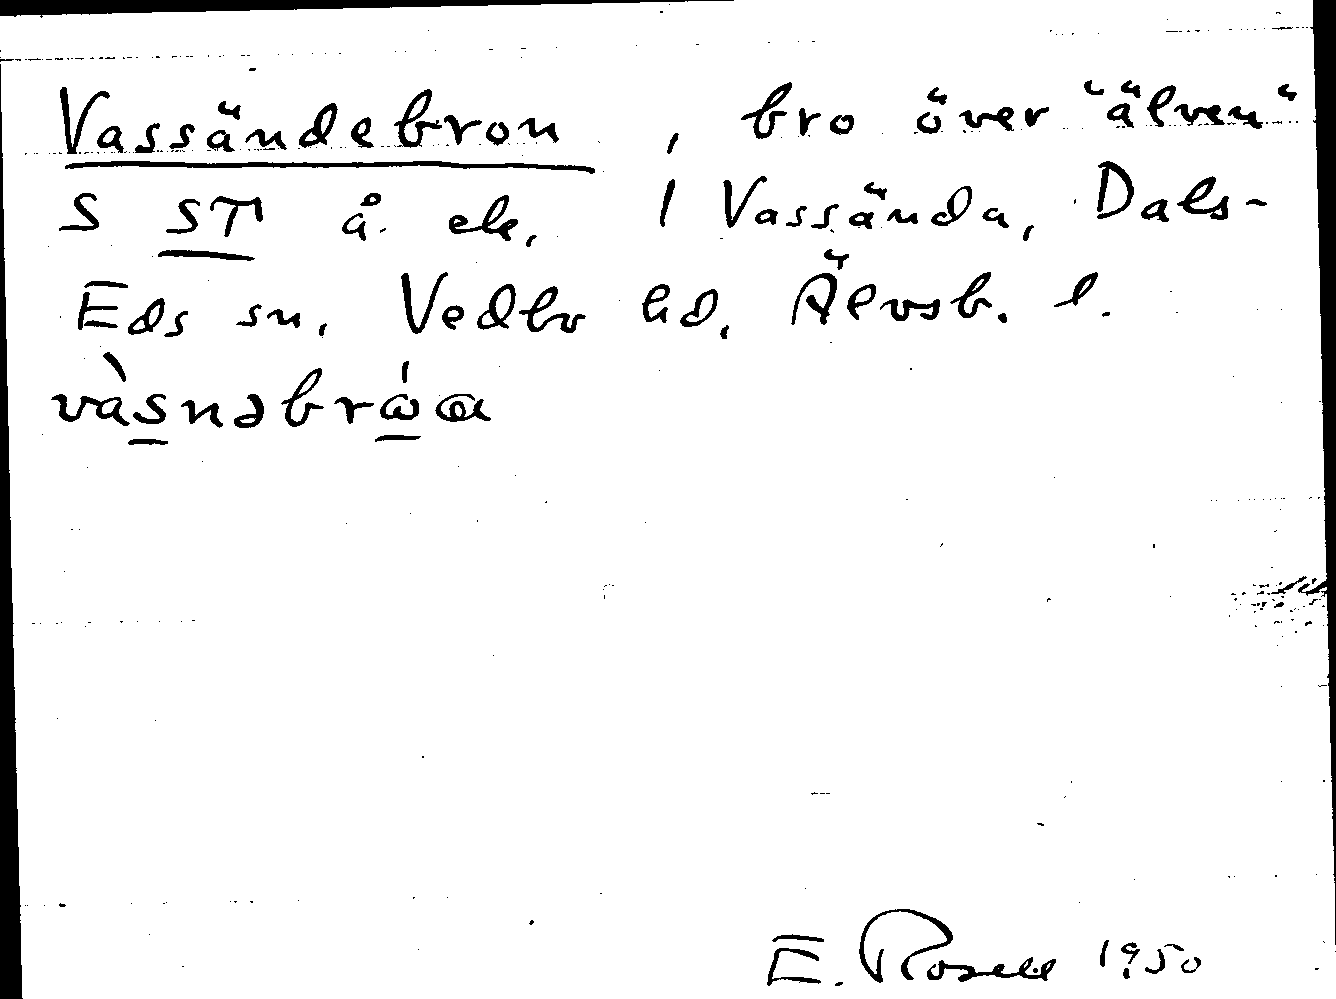 Vassändebron, bro över "älven"
S ST å. ek. 1 Vassända, Dals-
Eds sn, Vedbo hd, Älvsb. l.
vàsnəbrώα
E. Rosell 1950